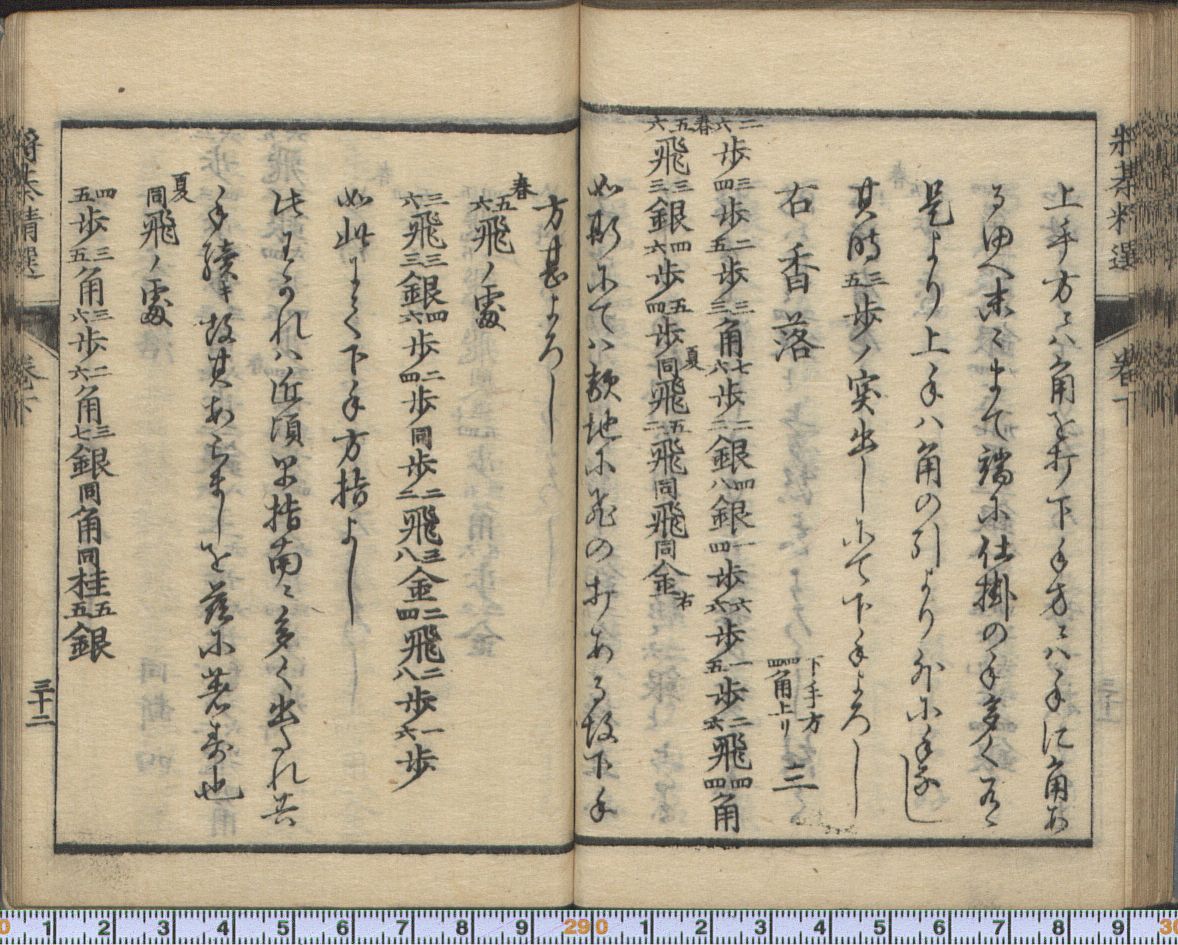 将棊精選
巻下
上手方ハ角を打下手方ハ手に角あ
るゆへ末々まて端に仕掛の手多く有
是より上手ハ角の引より外に手なし
其時三五歩ノ突出しにて下手よろし
右香落 下手方四四角上り 三
二六歩三四歩二五歩三三角七六歩二二銀四八銀一四歩六六歩一五歩二六飛四四角
春五六飛三三銀四六歩五四歩夏同飛五二飛同飛同金右
如斯にては敵地に飛の打ある故下手
方甚よろし
春五六飛ノ處
三六飛三三銀四六歩二四歩同歩二二飛三八金二四飛二八歩一六歩
如此にて下手方指よし
此わかれハ近頃品指南ニ多く出たれ共
手續キ故其あらましを茲に著す也
夏同飛ノ處
四五歩三五角三六歩二六角三七銀同角同桂五五銀
将棊精選
巻下
三十二